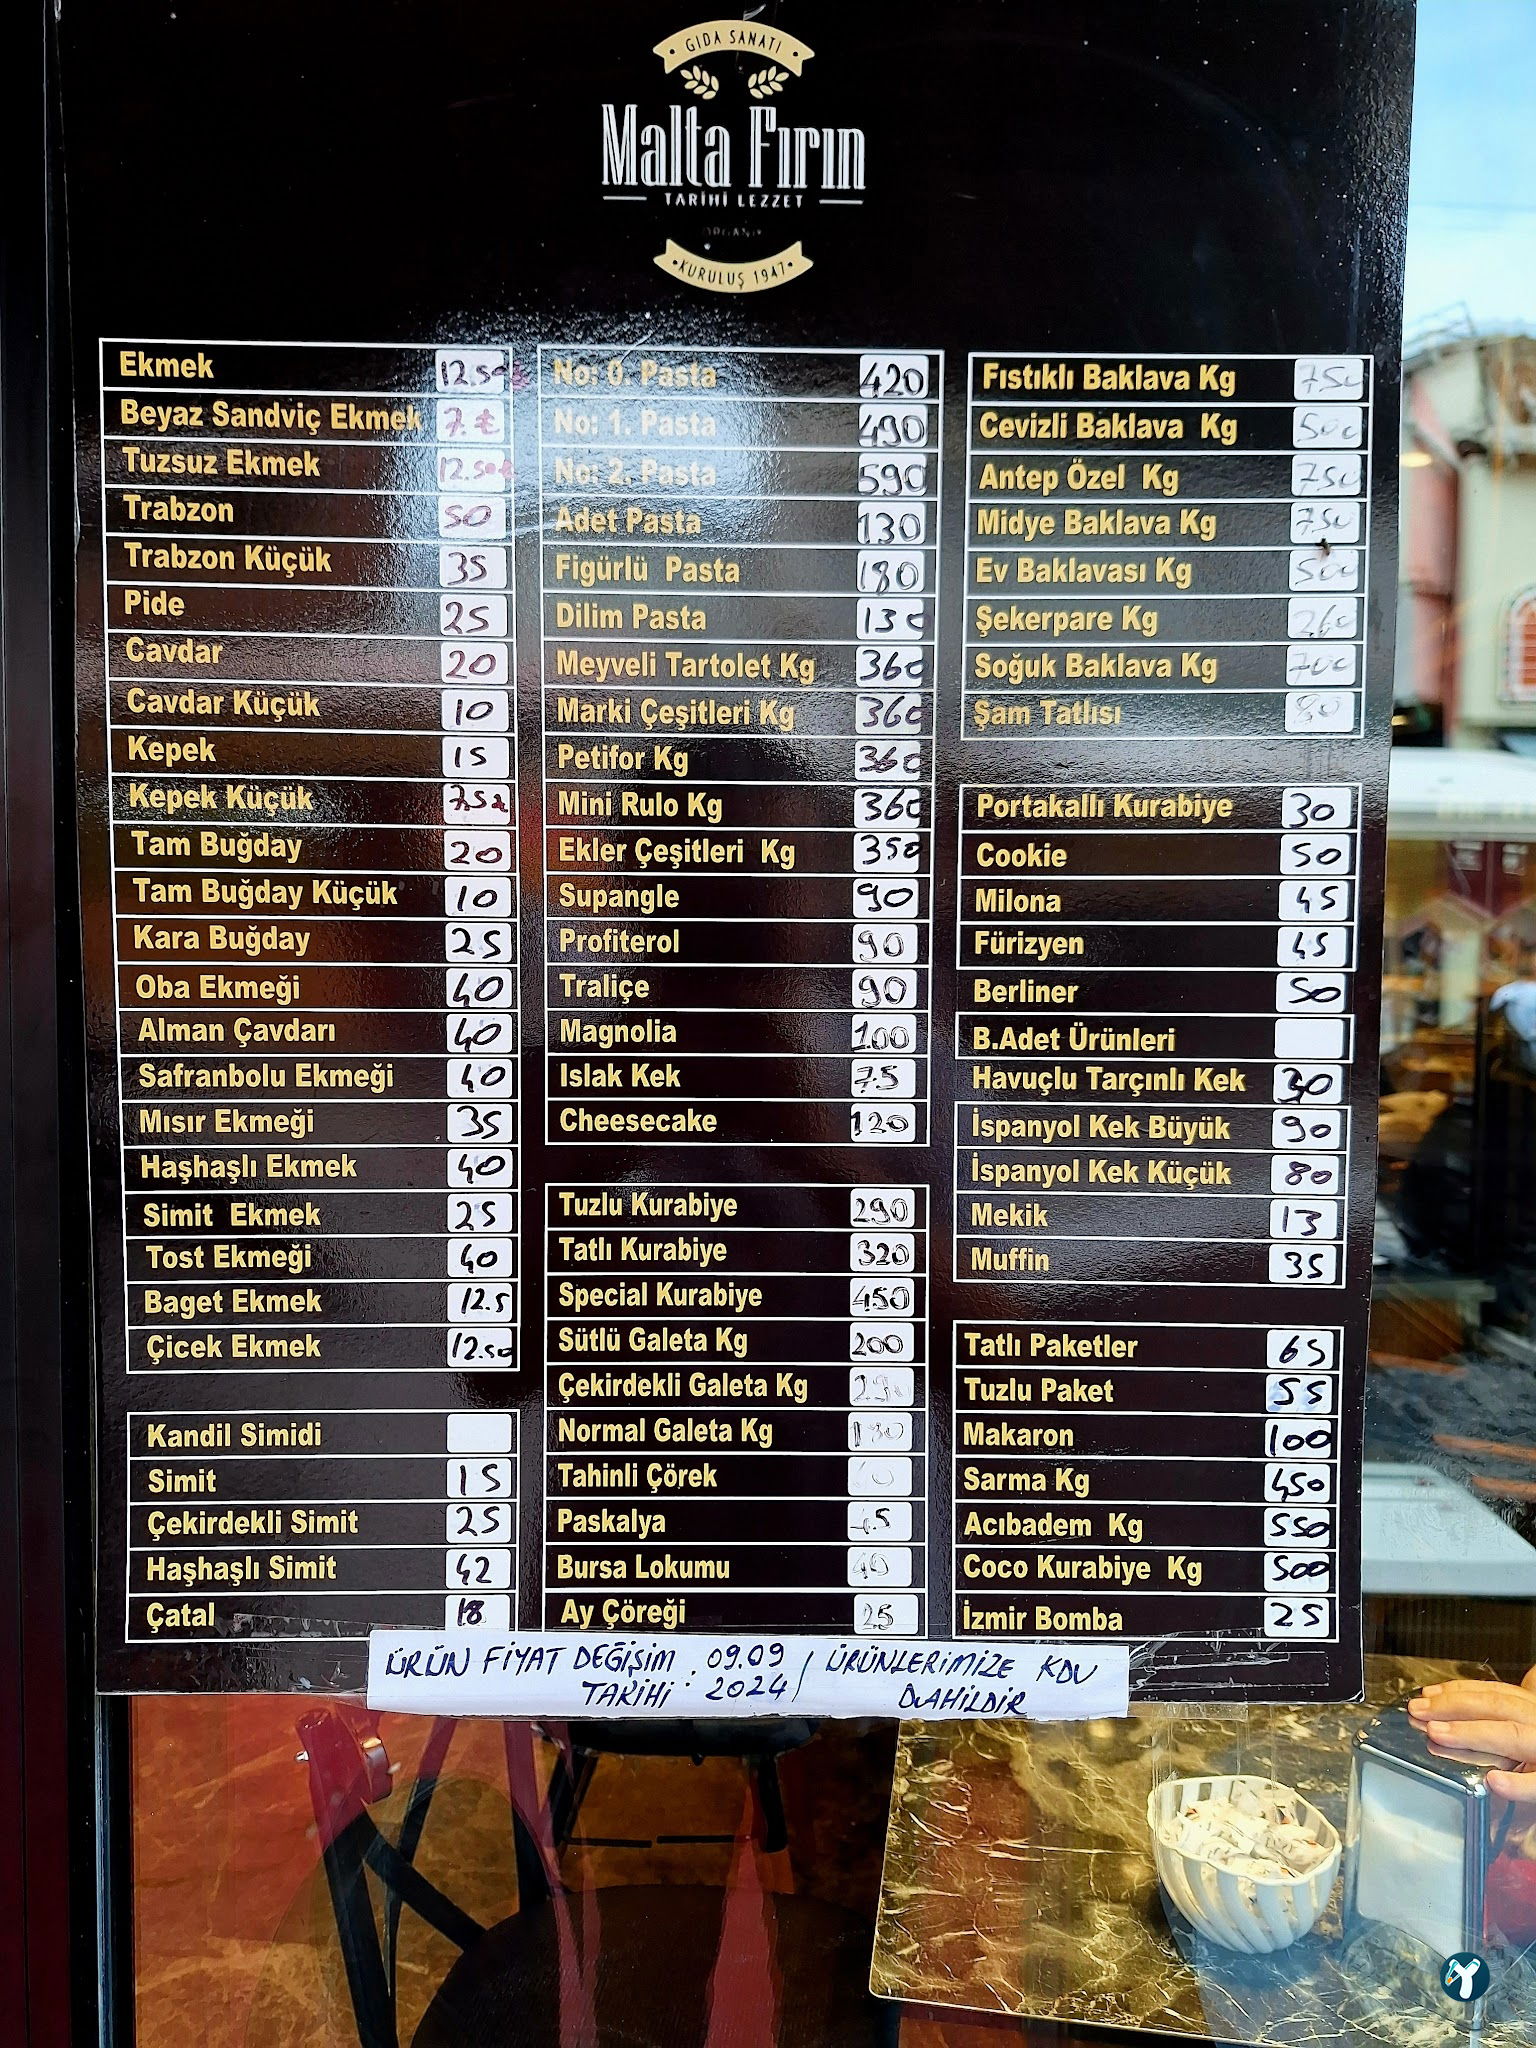 GIDA SANATI
Malta Fırın
TARİHİ LEZZET
ORGANİK
KURULUŞ 1947
Ekmek 12.50
Beyaz Sandviç Ekmek 7.₺
Tuzsuz Ekmek 12.50₺
Trabzon 50
Trabzon Küçük 35
Pide 25
Cavdar 20
Cavdar Küçük 10
Kepek 15
Kepek Küçük 7.5₺
Tam Buğday 20
Tam Buğday Küçük 10
Kara Buğday 25
Oba Ekmeği 40
Alman Çavdarı 40
Safranbolu Ekmeği 40
Mısır Ekmeği 35
Haşhaşlı Ekmek 40
Simit Ekmek 25
Tost Ekmeği 40
Baget Ekmek 12.5
Çicek Ekmek 12.50
Kandil Simidi
Simit 15
Çekirdekli Simit 25
Haşhaşlı Simit 42
Çatal 18
No: 0. Pasta 420
No: 1. Pasta 490
No: 2. Pasta 590
Adet Pasta 130
Figürlü Pasta 180
Dilim Pasta 130
Meyveli Tartolet Kg 360
Marki Çeşitleri Kg 360
Petifor Kg 360
Mini Rulo Kg 360
Ekler Çeşitleri Kg 350
Supangle 90
Profiterol 90
Traliçe 90
Magnolia 100
Islak Kek 7.5
Cheesecake 120
Tuzlu Kurabiye 290
Tatlı Kurabiye 320
Special Kurabiye 450
Sütlü Galeta Kg 200
Çekirdekli Galeta Kg
Normal Galeta Kg
Tahinli Çörek
Paskalya
Bursa Lokumu 40
Ay Çöreği 25
Fıstıklı Baklava Kg 750
Cevizli Baklava Kg 500
Antep Özel Kg 750
Midye Baklava Kg 750
Ev Baklavası Kg 500
Şekerpare Kg 260
Soğuk Baklava Kg 700
Şam Tatlısı 80
Portakallı Kurabiye 30
Cookie 50
Milona 45
Fürizyen 45
Berliner 50
B.Adet Ürünleri
Havuçlu Tarçınlı Kek 30
İspanyol Kek Büyük 90
İspanyol Kek Küçük 80
Mekik 13
Muffin 35
Tatlı Paketler 65
Tuzlu Paket 55
Makaron 100
Sarma Kg 450
Acıbadem Kg 550
Coco Kurabiye Kg 500
İzmir Bomba 25
ÜRÜN FİYAT DEĞİŞİM : 09.09 / ÜRÜNLERİMİZE KDV
TARİHİ 2024 DAHİLDİR